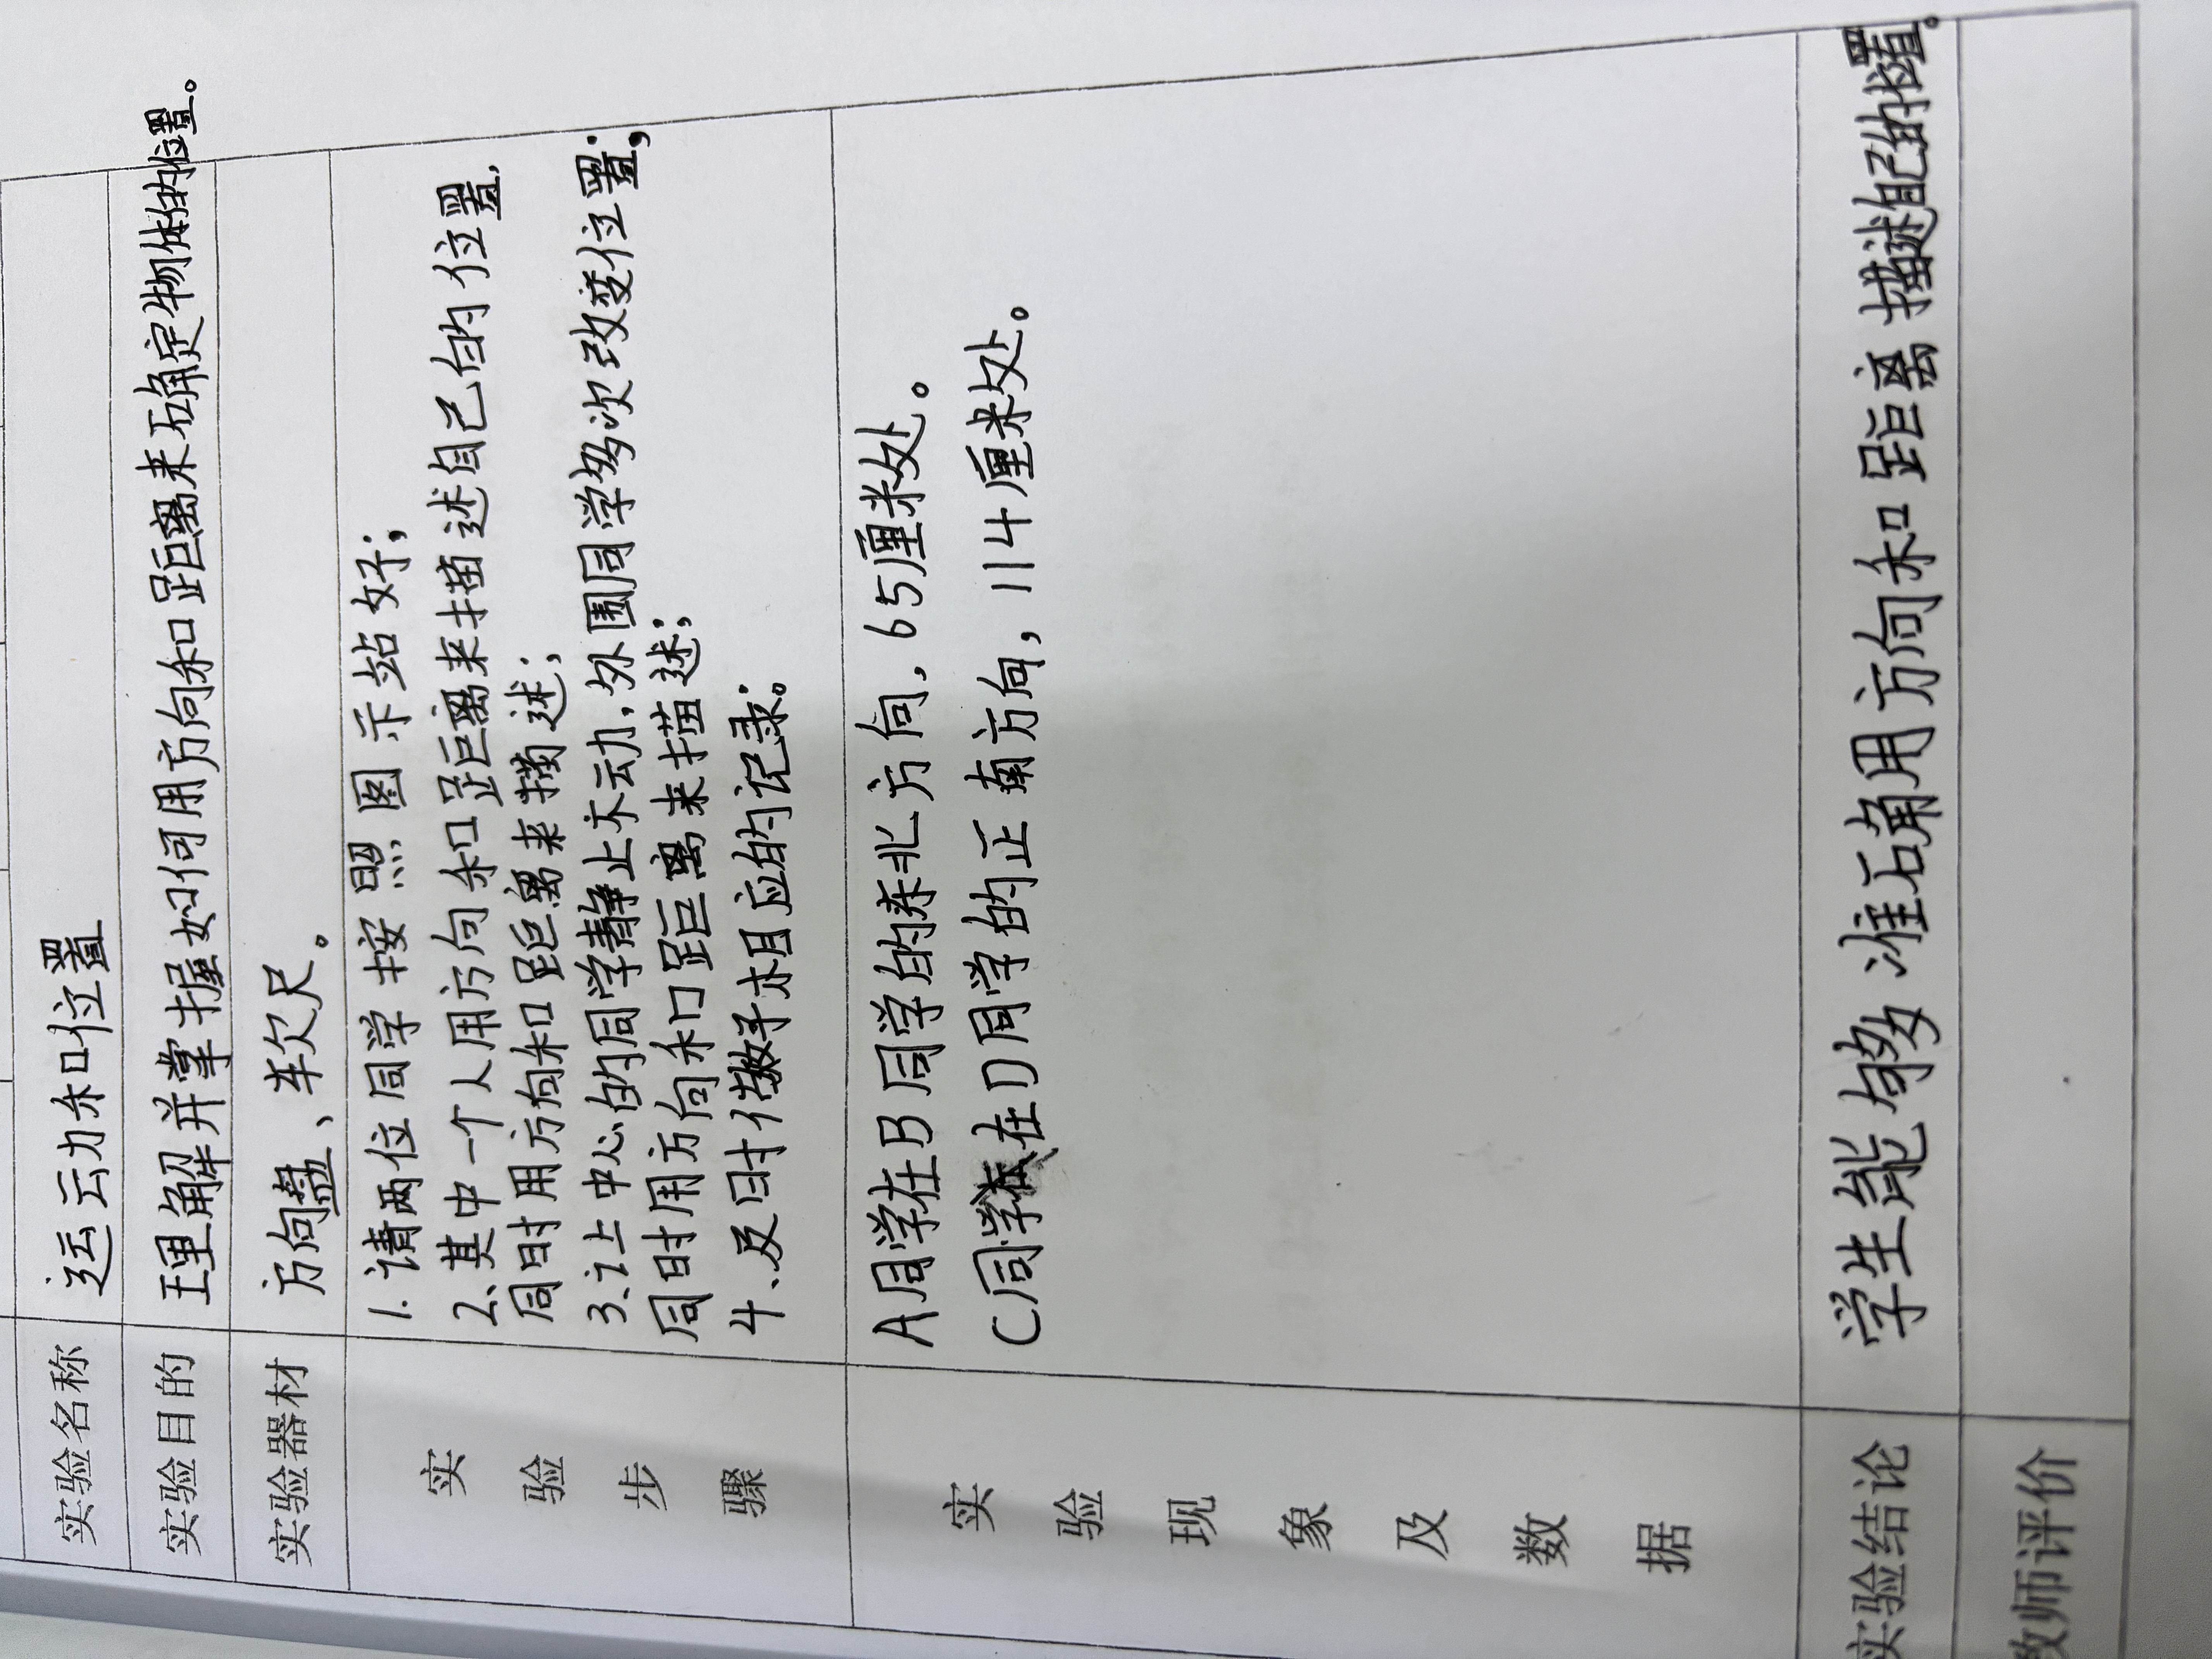 实验名称 运动和位置
实验目的 理解并掌握如何用方向和距离来确定物体的位置。
实验器材 方向盘、软尺。
实验步骤
1.请两位同学按照图示站好；
2.其中一个人用方向和距离来描述自己的位置,
同时用方向和距离来描述；
3.让中心的同学静止不动,外围同学多次改变位置；
同时用方向和距离来描述；
4、及时做好相应的记录。
实验现象及数据
A同学在B同学的东北方向,65厘米处。
C同学在D同学的正南方向,114厘米处。
实验结论 学生能够准确用方向和距离描述自己的位置。
教师评价